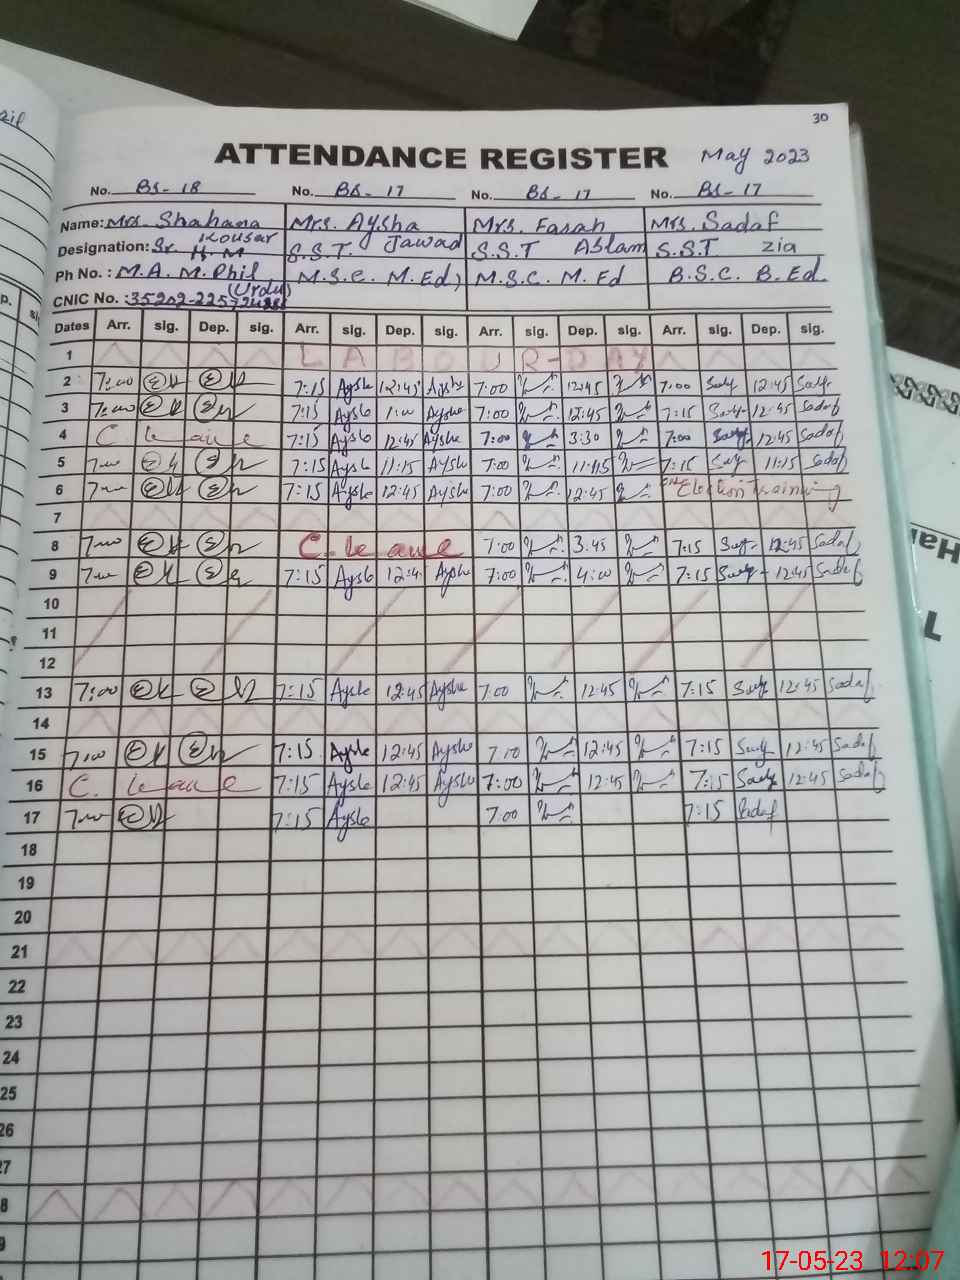 30
ATTENDANCE REGISTER May 2023
No. BS-18 No. BS-17 No. BS-17 No. BS-17
Name: Mrs. Shahana Mrs. Aysha Mrs. Farah Mrs. Sadaf
Kousar Jawad Aslam zia
Designation: Sr. H.M S.S.T S.S.T S.S.T
Ph No.: M.A. M.Phil M.S.C. M.Ed, M.S.C. M.Ed B.S.C. B.Ed.
(Urdu)
CNIC No.:
Dates Arr. sig. Dep. sig. Arr. sig. Dep. sig. Arr. sig. Dep. sig. Arr. sig. Dep. sig.
1 LABOUR-DAY
2 7:00 7:15 Aysha 12:45 Aysha 7:00 12:45 7:00 12:45 Sadaf
3 7:00 7:15 Aysha 1:00 Aysha 7:00 12:45 7:15 12:45 Sadaf
4 C leave 7:15 Aysha 12:45 Aysha 7:00 3:30 7:00 12:45 Sadaf
5 7:00 7:15 Aysha 11:15 Aysha 7:00 11:15 7:15 11:15 Sadaf
6 7:00 7:15 Aysha 12:45 Aysha 7:00 12:45 Election Training
7
8 7:00 C. leave 7:00 3:45 7:15 12:45 Sadaf
9 7:00 7:15 Aysha 12:4 Aysha 7:00 4:00 7:15 12:45 Sadaf
10
11
12
13 7:00 7:15 Aysha 12:45 Aysha 7:00 12:45 7:15 12:45 Sadaf
14
15 7:00 7:15 Aysha 12:45 Aysha 7:00 12:45 7:15 12:45 Sadaf
16 C. leave 7:15 Aysha 12:45 Aysha 7:00 12:45 7:15 12:45 Sadaf
17 7:00 7:15 Aysha 7:00 7:15 Sadaf
18
19
20
21
22
23
24
25
26
27
8
9
17-05-23 12:07